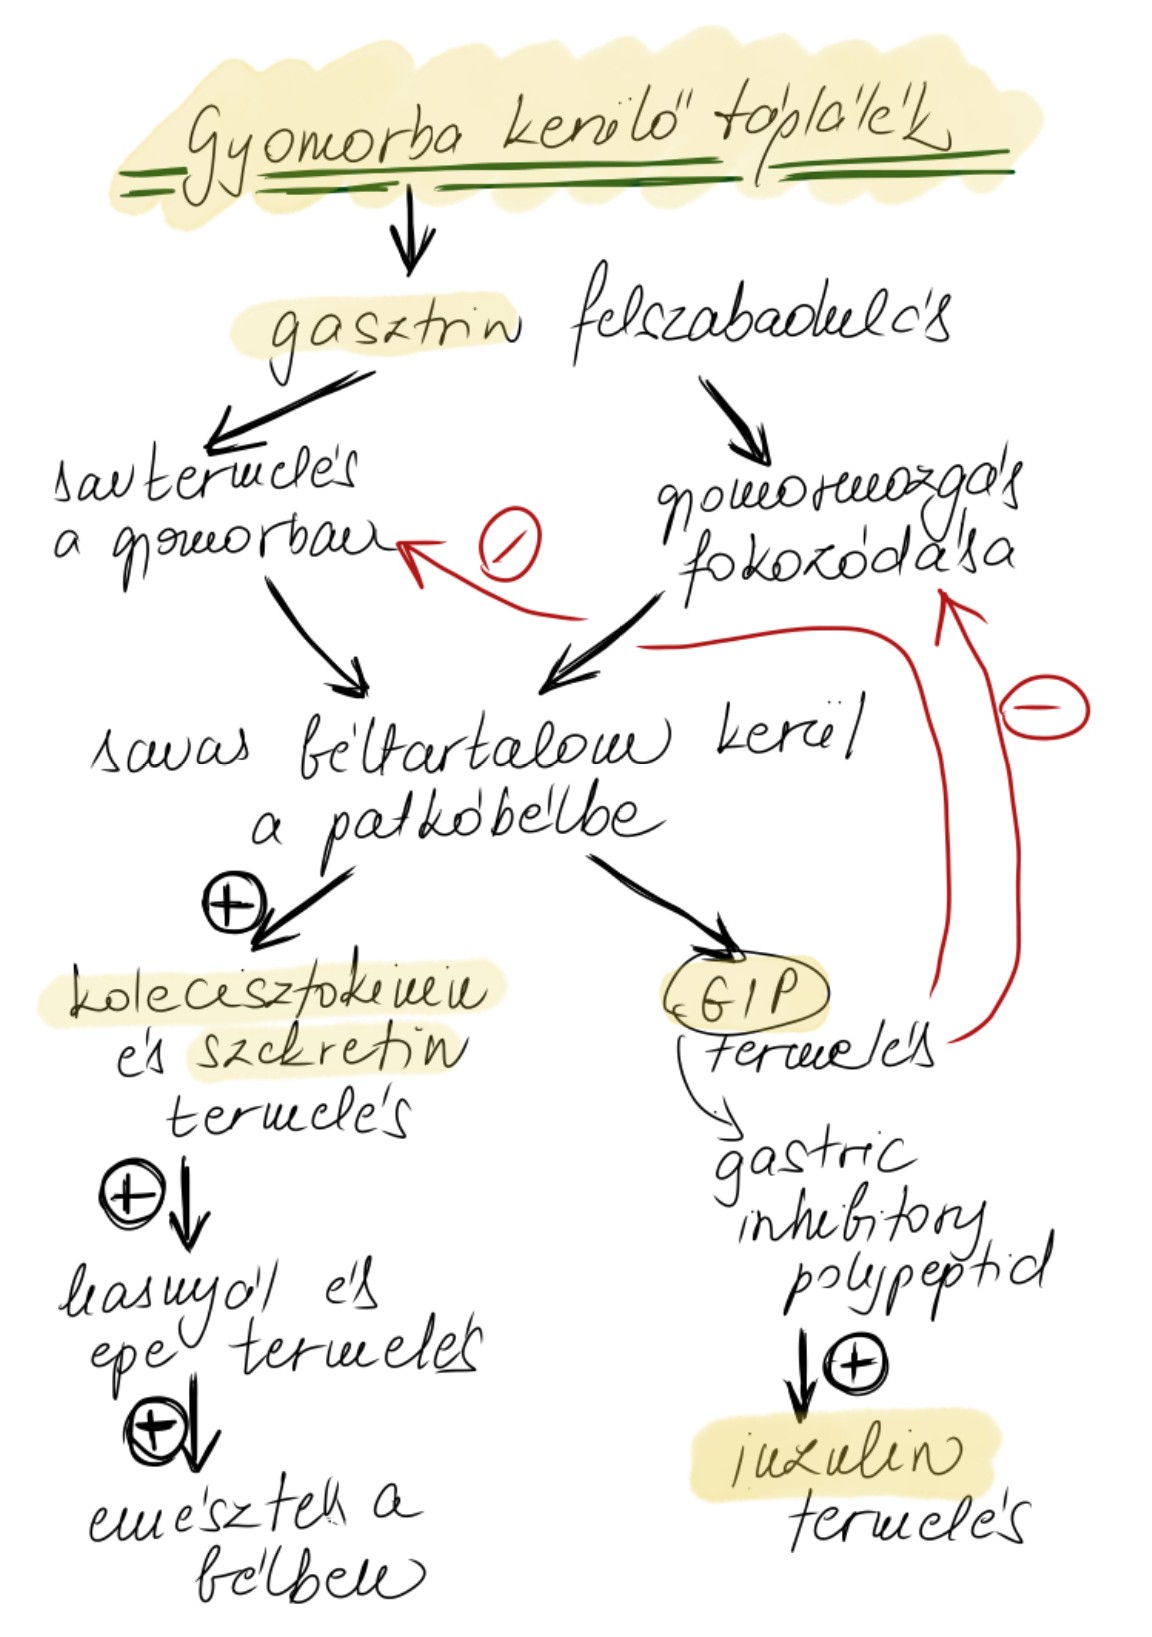 Gyomorba kerülő táplálék
gasztrin felszabadulás
savtermelés
a gyomorban
gyomormozgás
fokozódása
savas béltartalom kerül
a patkóbélbe
kolecisztokinin
és szekretin
termelés
GIP
termelés
gastric
inhibitory
polypeptid
hasnyál és
epe termelés
inzulin
termelés
bélben